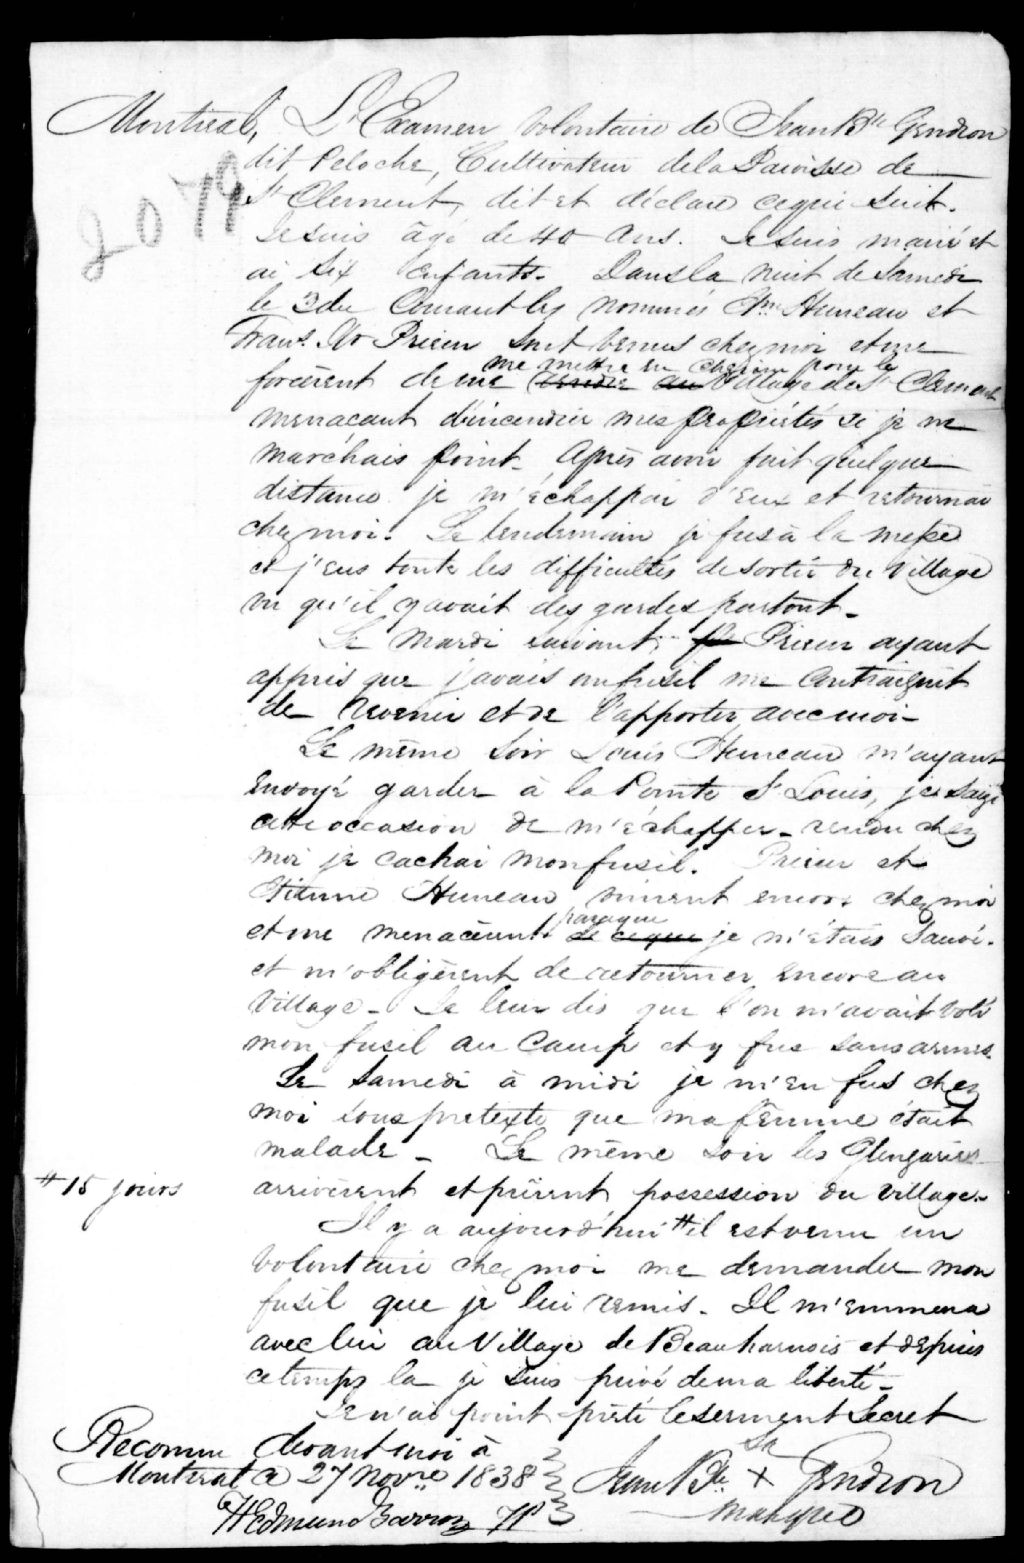 Montreal, L'Examen Volontaire de Jean Bte Gendron
dit Peloche, Cultivateur de la Paroisse de
St Clement, dit et déclare ce qui suit.
2079
Je suis âgé de 40 ans. Je suis marié et
ai six enfants. Dans la nuit de Samedi
le 3 du Courant les nommés Etne Huneau et
Frans. Xr Prieur sont venus chez moi et me
me mettre en chemin pour le
forcèrent de me rendre au Village de St Clement
menacant d'incendier mes propriétés si je ne
marchais point. Après avoir fait quelque
distance je m'échappai d'eux et retournai
chez moi. Le lendemain je fus à la messe
et j'eus toute les difficultés de sortir du Village
vu qu'il y avait des gardes partout.
Le mardi suivant, Prieur ayant
appris que j'avais un fusil me contraignit
de revenir et de l'apporter avec moi.
Le même soir Louis Huneau m'ayant
envoyé garder à la Pointe St Louis, je saisi
cette occasion de m'échapper. rendu chez
moi je cachai mon fusil. Prieur et
Etienne Huneau vinrent encore chez moi
parceque
et me menacèrent de ce que je m'étais sauvé.
et m'obligèrent de retourner encore au
Village. Je leur dis que l'on m'avait volé
mon fusil au Camp et y fus sans armes.
Le Samedi à midi je m'en fus chez
moi sous pretexte que ma femme était
malade. Le même soir les Glengaries
# 15 jours
arrivèrent et prirent possession du Village.
Il y a aujourd'hui # il est venu un
volontaire chez moi me demander mon
fusil que je lui remis. Il m'emmena
avec lui au Village de Beauharnois et depuis
ce temps la je suis privé de ma liberté.
Je n'ai point prêté le serment Secret
Reconnu devant moi à
Montreal ce 27 Novre 1838
H Edmund Barron JP
Sa
Jean Bte X Gendron
marque